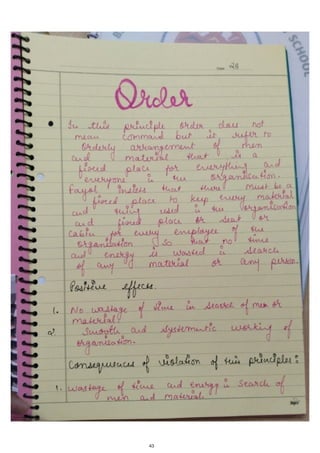 SCHOOL
DATE 28
Order
In this principle order does not
mean command but it refer to
Orderly arrangement of men
and material that is a
fixed place for everything and
everyone in the organisation.
Fayol insists that there must be a
fixed place to keep every material
and thing used in the organisation
and fixed place or seat or
Cabin for every employee of the
Organisation So that no time
and energy is wasted in search
of any material or any person.
Positive effects.
1. No wastage of time in search of men or
material.
2. Smooth and systematic working of
organisation.
Consequences of violation of this principles :
1. Wastage of time and energy in search of
men and material.
43